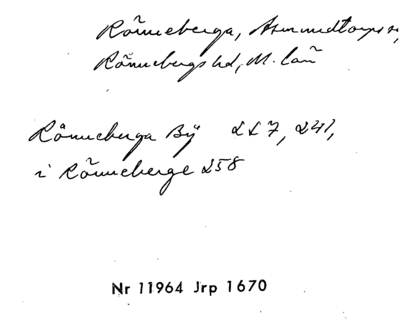 Rönneberga, Asmundtorps sn,
Rönnebergs hd, M. län
Rönneberga By 227, 241,
i Rönneberge 258
Nr 11964 Jrp 1670